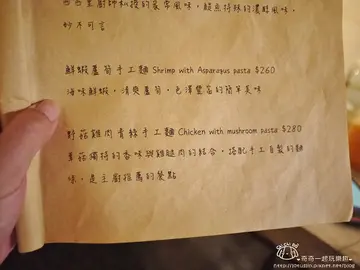 西西里廚師私授的豪華風味，鯷魚特殊的濃郁風味，
妙不可言
鮮蝦蘆筍手工麵 Shrimp with Asparagus pasta $260
海味鮮蝦，清爽蘆筍，色澤豐富的簡單美味
野菇雞肉青綠手工麵 Chicken with mushroom pasta $280
草菇獨特的香味與雞腿肉的結合，搭配手工自製的麵
味，是主廚推薦的餐點
奇奇一起玩樂趣